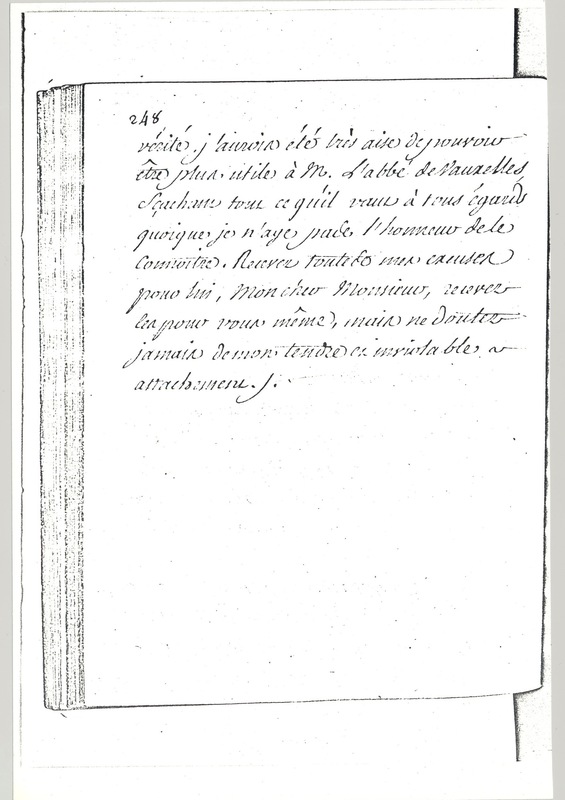 248
vérité. j'aurois été très aise de pouvoir
être plus utile à M. L'abbé de Vauxelles,
Sçachant tout ce qu'il vaut à tous égards
quoique je n'aye pas l'honneur de le
connoitre. Recevez toutes mes excuses
pour lui, Mon cher Monsieur, recevez
les pour vous même, mais ne doutez
jamais de mon tendre et inviolable
attachement. /.